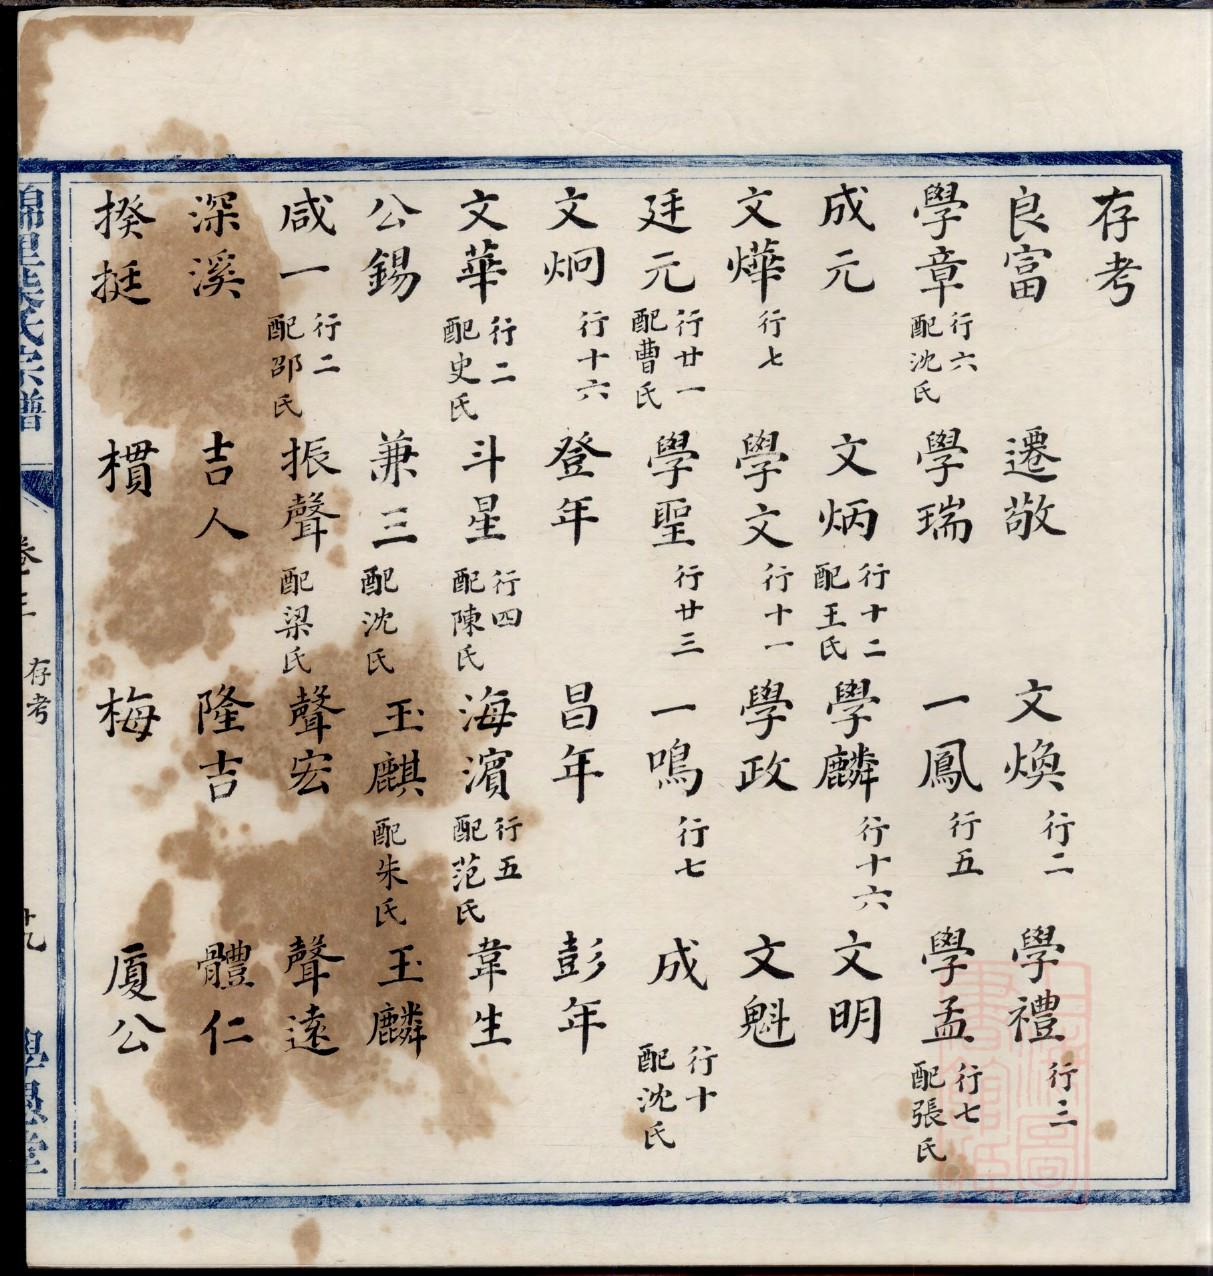 存考
良富 遷敬 文煥 行二 學禮 行三
學章 行六 配沈氏 學瑞 一鳳 行五 學孟 行七 配張氏
成元 文炳 行十二 配王氏 學麟 行十六 文明
文燁 行七 學文 行十一 學政 文魁
廷元 行廿一 配曹氏 學聖 行廿三 一鳴 行七 成 行十 配沈氏
文炯 行十六 登年 昌年 彭年
文華 行二 配史氏 斗星 行四 配陳氏 海濱 行五 配范氏 韋生
公錫 兼三 配沈氏 玉麒 配朱氏 玉麟
咸一 行二 配邵氏 振聲 配梁氏 聲宏 聲遠
深溪 吉人 隆吉 體仁
揆挺 樌 梅 厦公
氏宗譜 卷三 存考 廿九